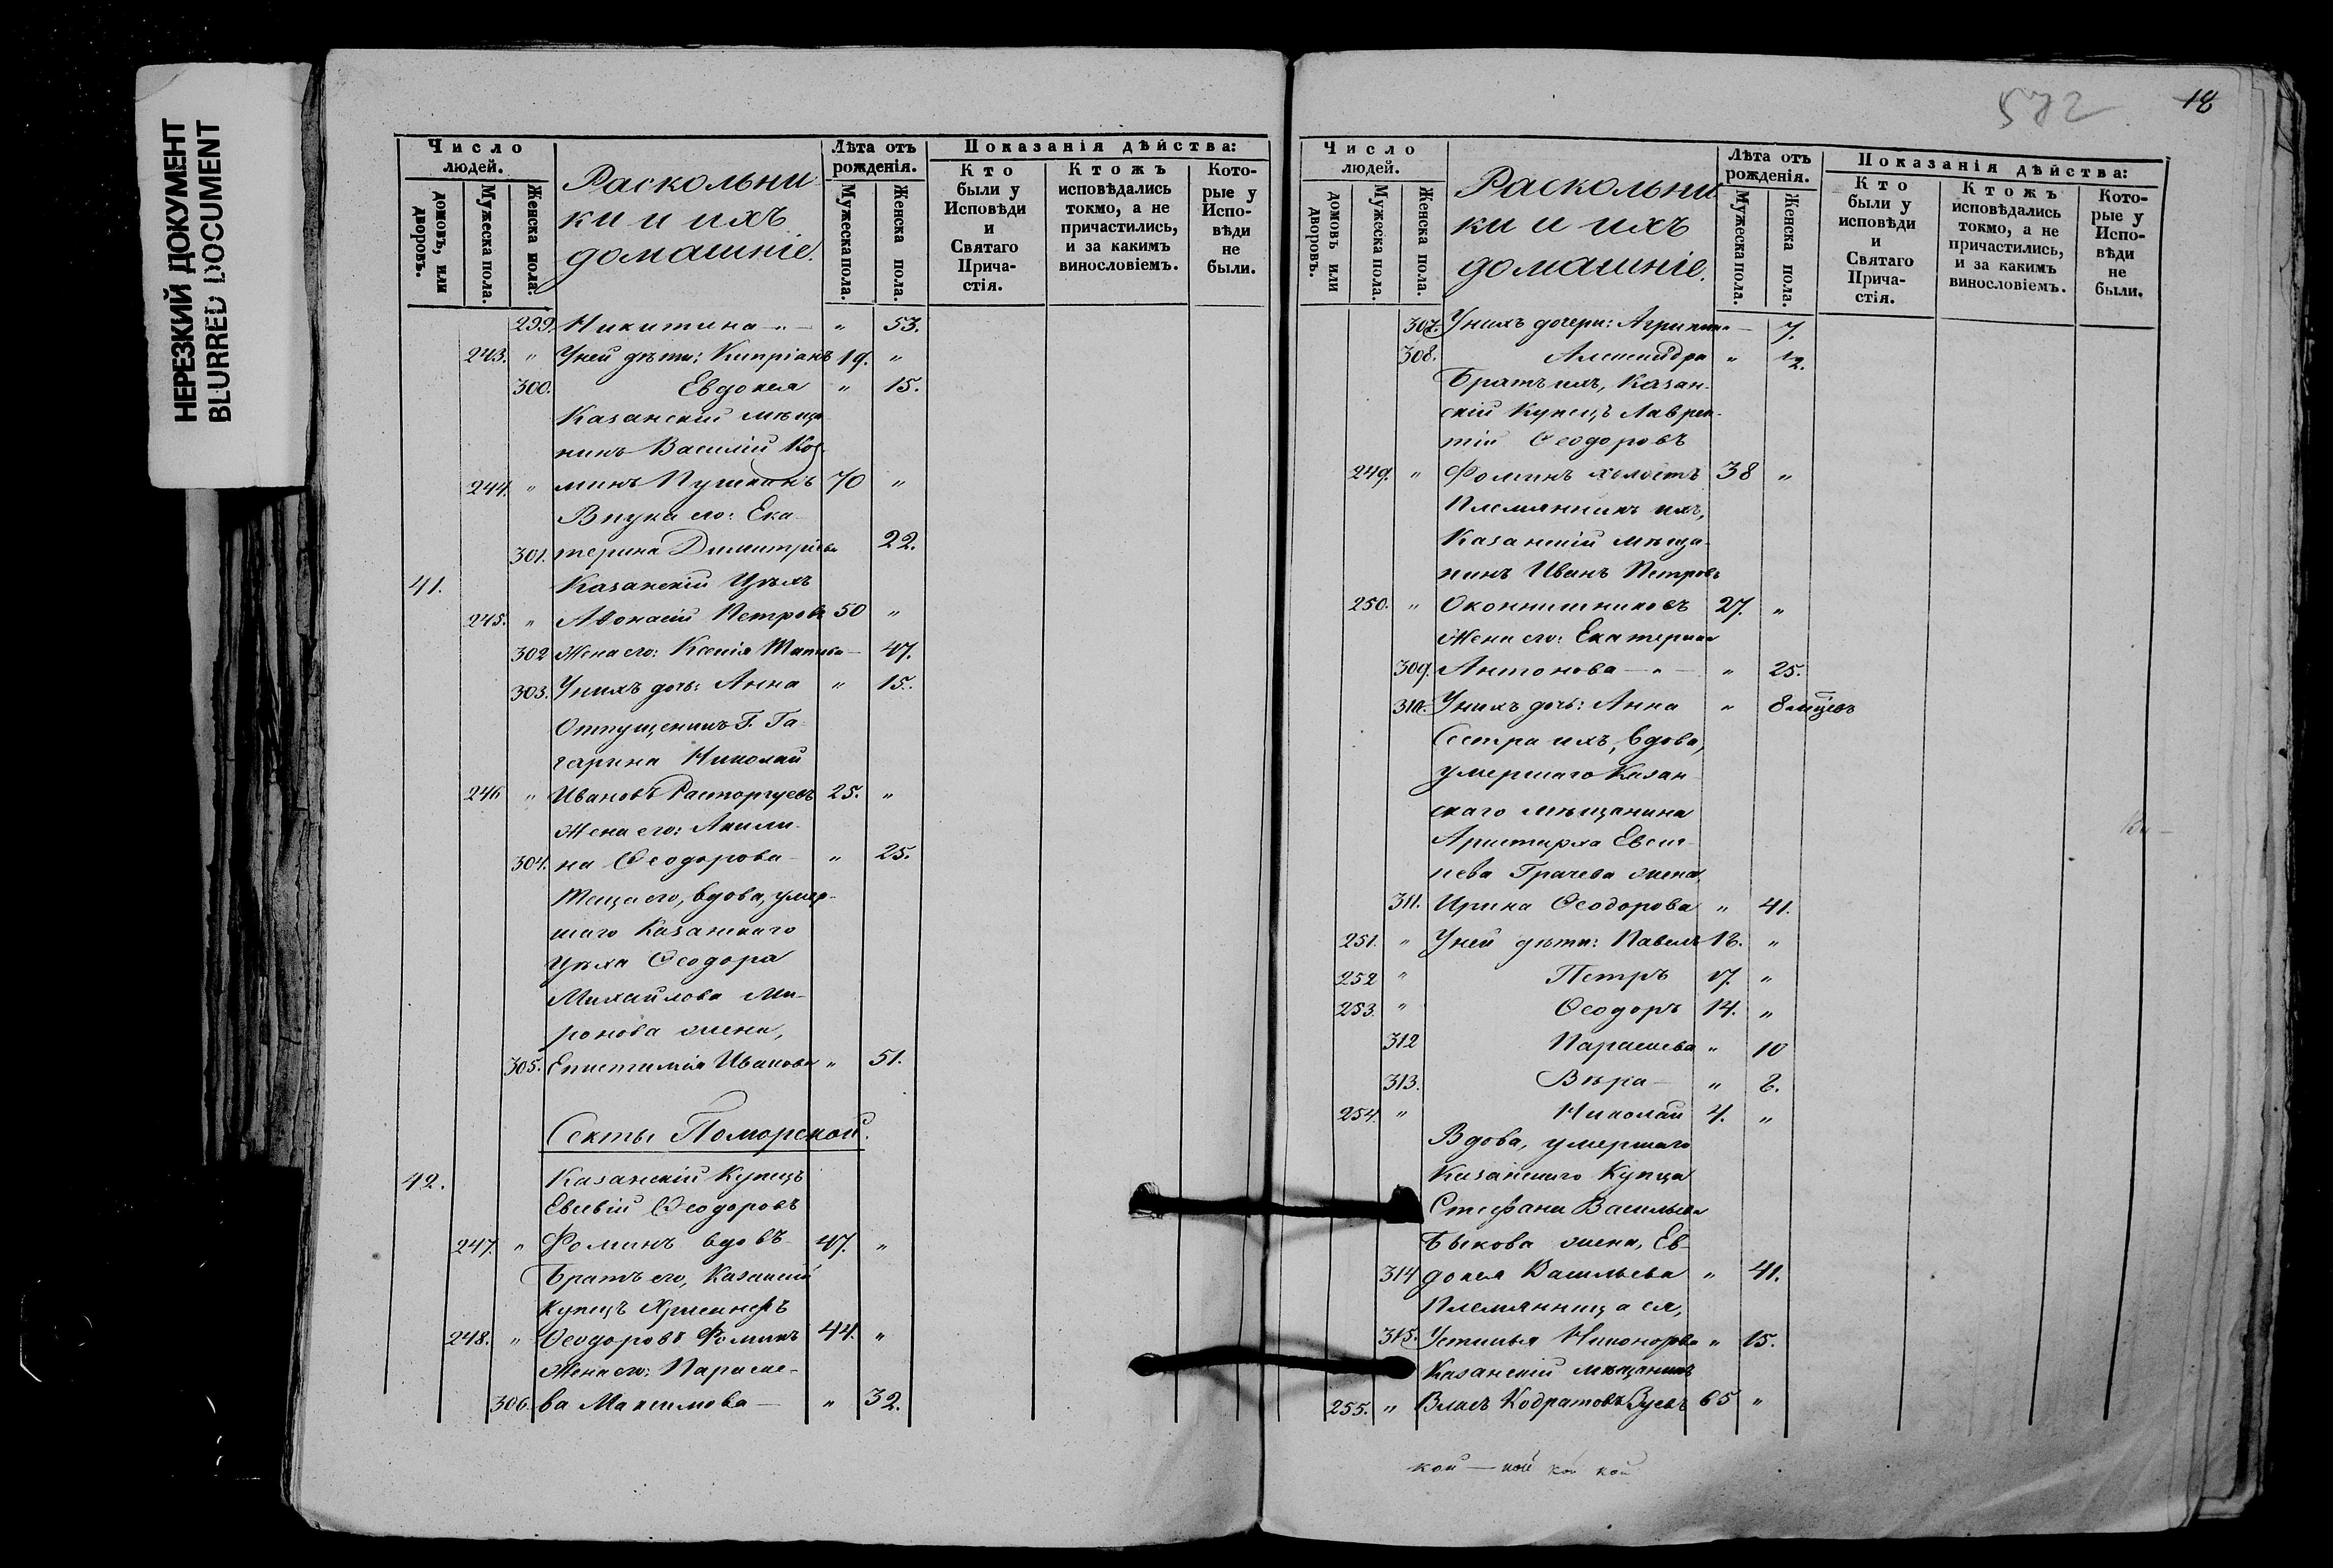 НЕРЕЗКИЙ ДОКУМЕНТ
BLURRED DOCUMENT
Число людей.
домовъ, или дворовъ.
Мужеска пола.
Женска пола.
Раскольни-
ки и ихъ
домашніе.
Лѣта отъ рожденія.
Мужеска пола.
Женска пола.
Показанія дѣйства:
Кто были у Исповѣди и Святаго Прича-стія.
Ктожъ исповѣдались токмо, а не причастились, и за какимъ винословіемъ.
Кото-рые у Испо-вѣди не были.
299. Никитина — " — " 53.
243. " У ней дѣти: Кипріанъ 19. "
300. Евдокея " 15.
Казанскій мѣща-
нинъ Василій Коз-
244. " минъ Пушкинъ 70 "
Внука его: Ека-
301. терина Димитріева 22.
41. Казанскій Цѣхъ
245. " Аѳонасій Петровъ 50 "
302 Жена его: Ксенія — 47.
303. У нихъ дочь: Анна " 15.
Отпущенникъ Г. Га-
гарина Николай
246 " Ивановъ Расторгуевъ 25. "
Жена его: Акили-
304. на Ѳеодорова — " 25.
Теща его, вдова, умер-
шаго Казанскаго
Цѣха Ѳеодора
Михайлова Ми-
ронова жена,
305. Епистимія Иванова " 51.
Секты Поморской.
42. Казанскій Купецъ
Евсевій Ѳеодоровъ
247. " Фоминъ вдовъ 47. "
Братъ его, Казанскій
Купецъ
248. " Ѳеодоровъ Фоминъ 44. "
Жена его: Параске-
306. ва Максимова — " 32.
572
18
Число людей.
домовъ или дворовъ.
Мужеска пола.
Женска пола.
Раскольни-
ки и ихъ
домашніе.
Лѣта отъ рожденія.
Мужеска пола.
Женска пола.
Показанія дѣйства:
Кто были у исповѣди и Святаго Прича-стія.
Ктожъ исповѣдались токмо, а не причастились, и за какимъ винословіемъ.
Кото-рые у Испо-вѣди не были.
307. У нихъ дочери: Агрипина — 7.
308. Александра " 2.
Братъ ихъ, Казан-
скій Купецъ Лаврен-
тій Ѳеодоровъ
249. " Фоминъ холостъ 38 "
Племянникъ ихъ,
Казанскій мѣща-
нинъ Иванъ Петровъ
250. " Оконнишниковъ 27. "
Жена его: Екатерина
309. Антонова — " — " 25.
310. У нихъ дочь: Анна " 8 мѣцевъ
Сестра ихъ, вдова,
умершаго Казан-
скаго мѣщанина
Аристарха Евсиг-
нева Грачева жена,
311. Ирина Ѳеодорова " 41.
251. " У ней дѣти: Павелъ 18. "
252 " Петръ 17. "
253. " Ѳеодоръ 14. "
312 Параскева " 10
313. Вѣра — " 8.
254. " Николай 4. "
Вдова, умершаго
Казанскаго Купца
Стефана Васильева
Быкова жена, Ев-
314 докея Васильева " 41.
Племянница ея,
315. Устинья Никонорова " 15.
Казанскій мѣщанинъ
255. " Власъ Кодратовъ Зуевъ 65 "
кой — кой кой кой